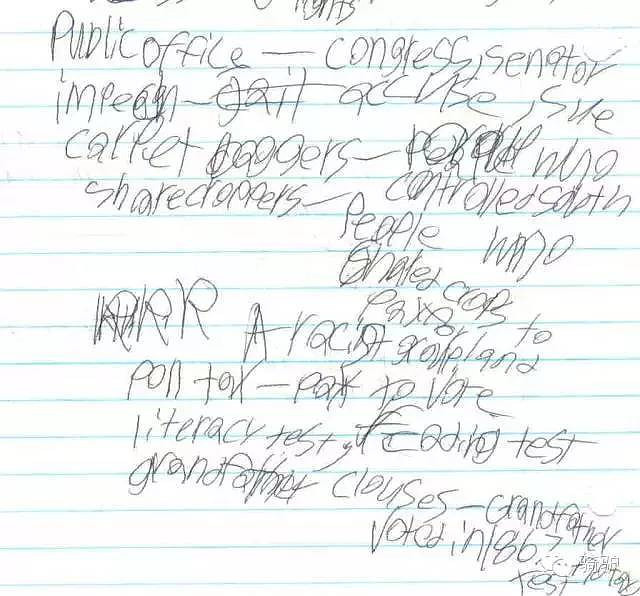 rights
Public office — congress, senator
impeach — accuse, sue
carpet baggers — people who
sharecroppers — controlled south
People who
shared crops
KKK A racist group
poll tax — pay to vote
literacy test, reading test
grandfather clouses — grandfather
voted in 1867
骑驴
test no tax